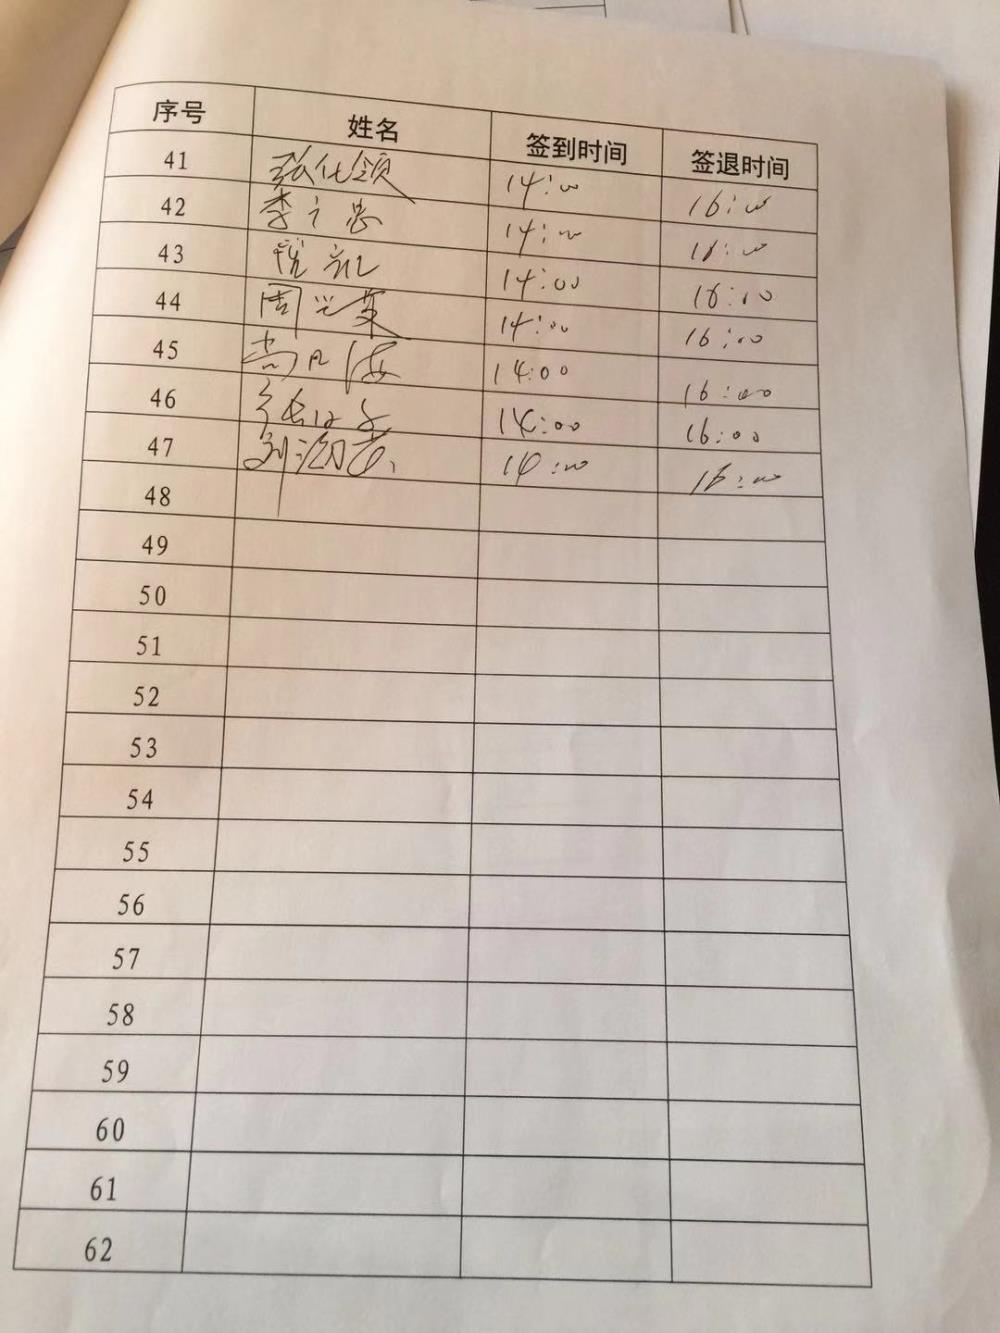 序号 姓名 签到时间 签退时间
41 张化领 14:00 16:00
42 李之忠 14:00 16:00
43 14:00 16:00
44 周兴英 14:00 16:00
45 尚 海 14:00 16:00
46 14:00 16:00
47 刘 14:00 16:00
48
49
50
51
52
53
54
55
56
57
58
59
60
61
62